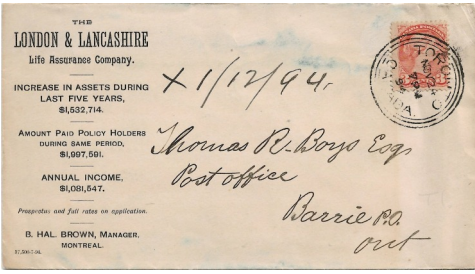 THE
LONDON & LANCASHIRE
Life Assurance Company.
INCREASE IN ASSETS DURING
LAST FIVE YEARS,
$1,532,714.
AMOUNT PAID POLICY HOLDERS
DURING SAME PERIOD,
$1,997,591.
ANNUAL INCOME,
$1,081,547.
Prospectus and full rates on application.
B. HAL. BROWN, MANAGER.
MONTREAL.
X 1/12/94.
TORONTO
CANADA
Thomas R. Boys Esq
Post office
Barrie P.O.
Ont